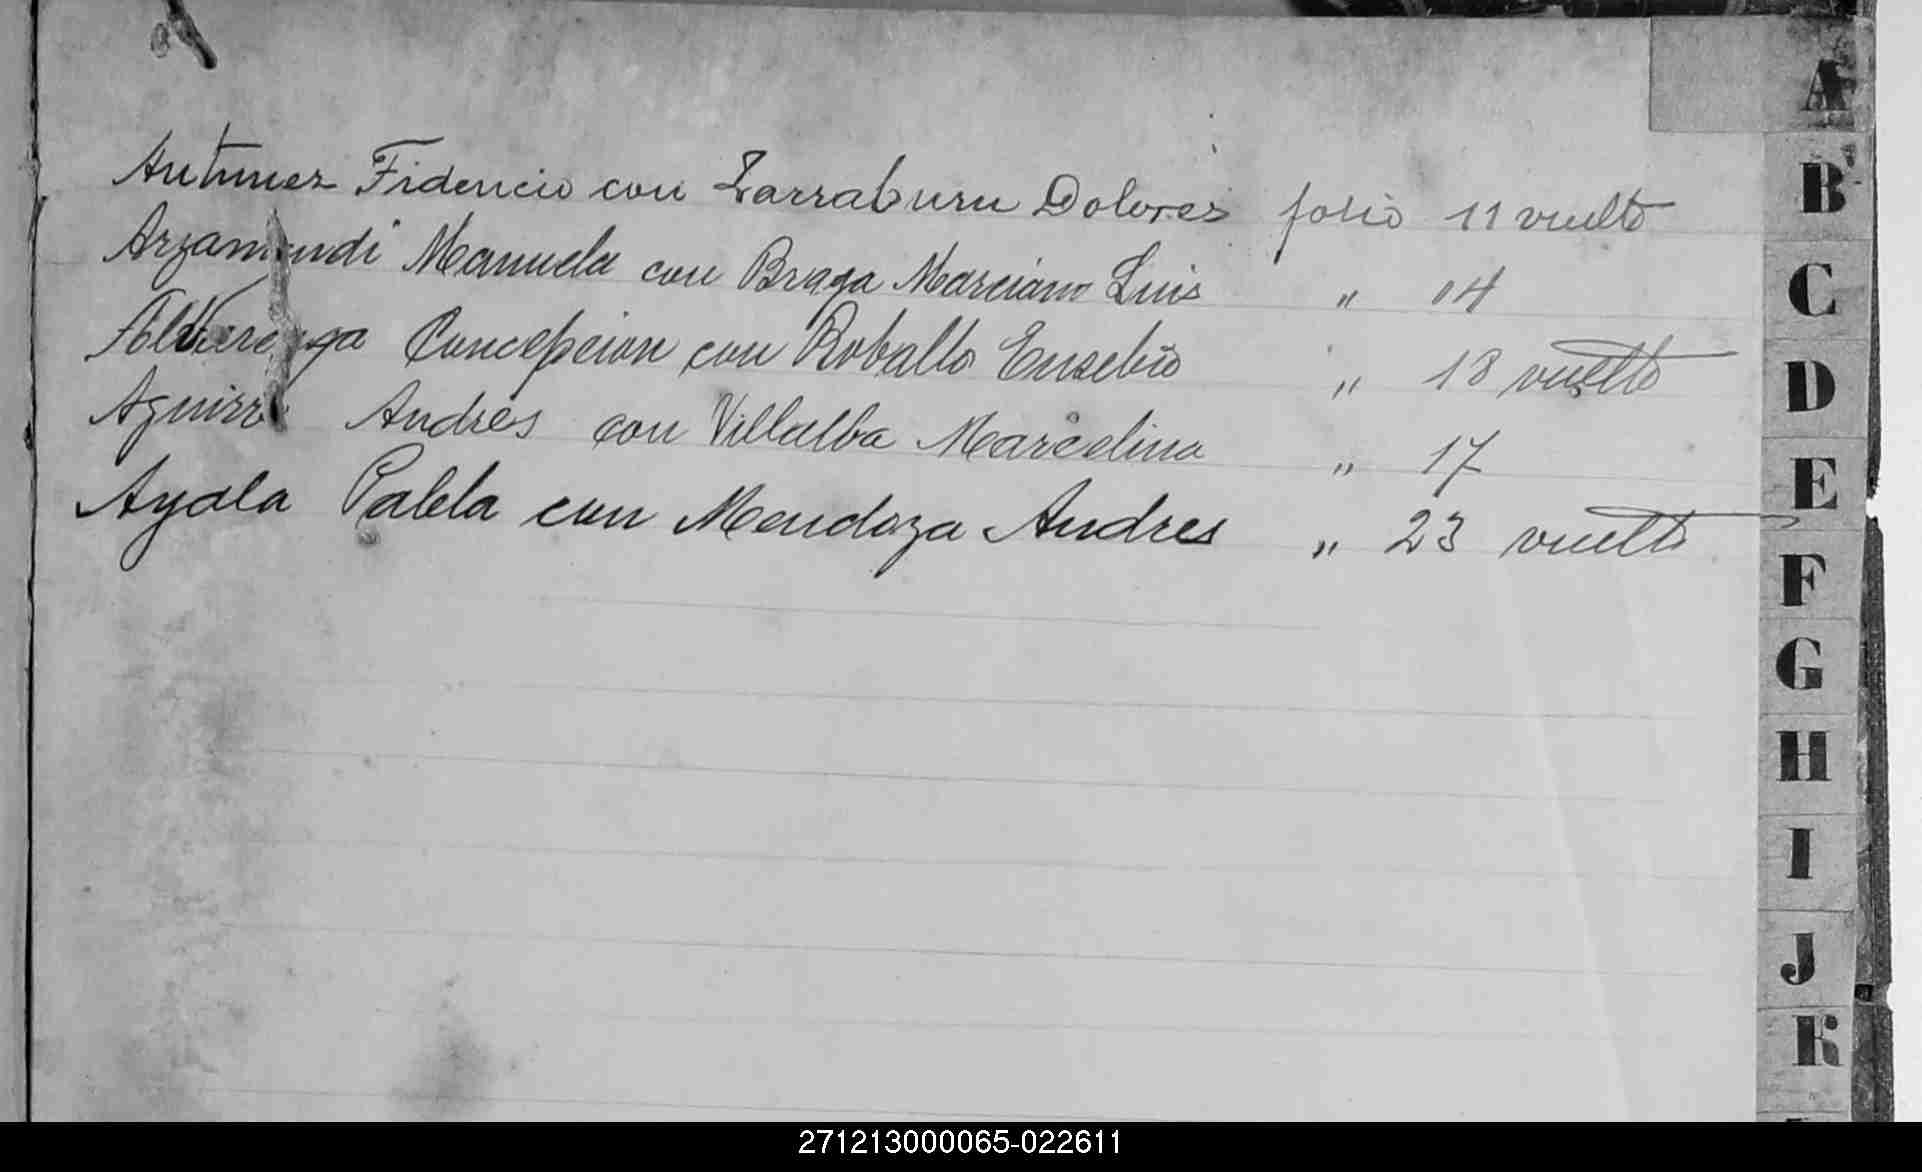 Antunez Fidencio con Larraburu Dolores folio 11 vuelto
Arzamendi Manuela con Braga Marciano Luis " 14
Alvarenga Concepcion con Roballo Eusebio " 18 vuelto
Aguirre Andrés con Villalba Marcelina " 17
Ayala Pabla con Mendoza Andres " 23 vuelto
A
B
C
D
E
F
G
H
I
J
K
271213000065-022611